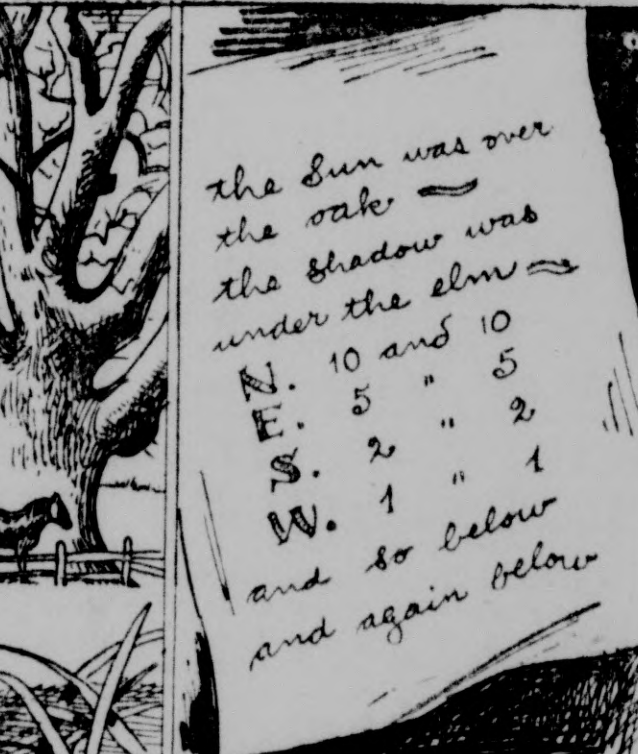 the Sun was over
the oak
the shadow was
under the elm
N. 10 and 10
E. 5 " 5
S. 2 " 2
W. 1 " 1
and so below
and again below